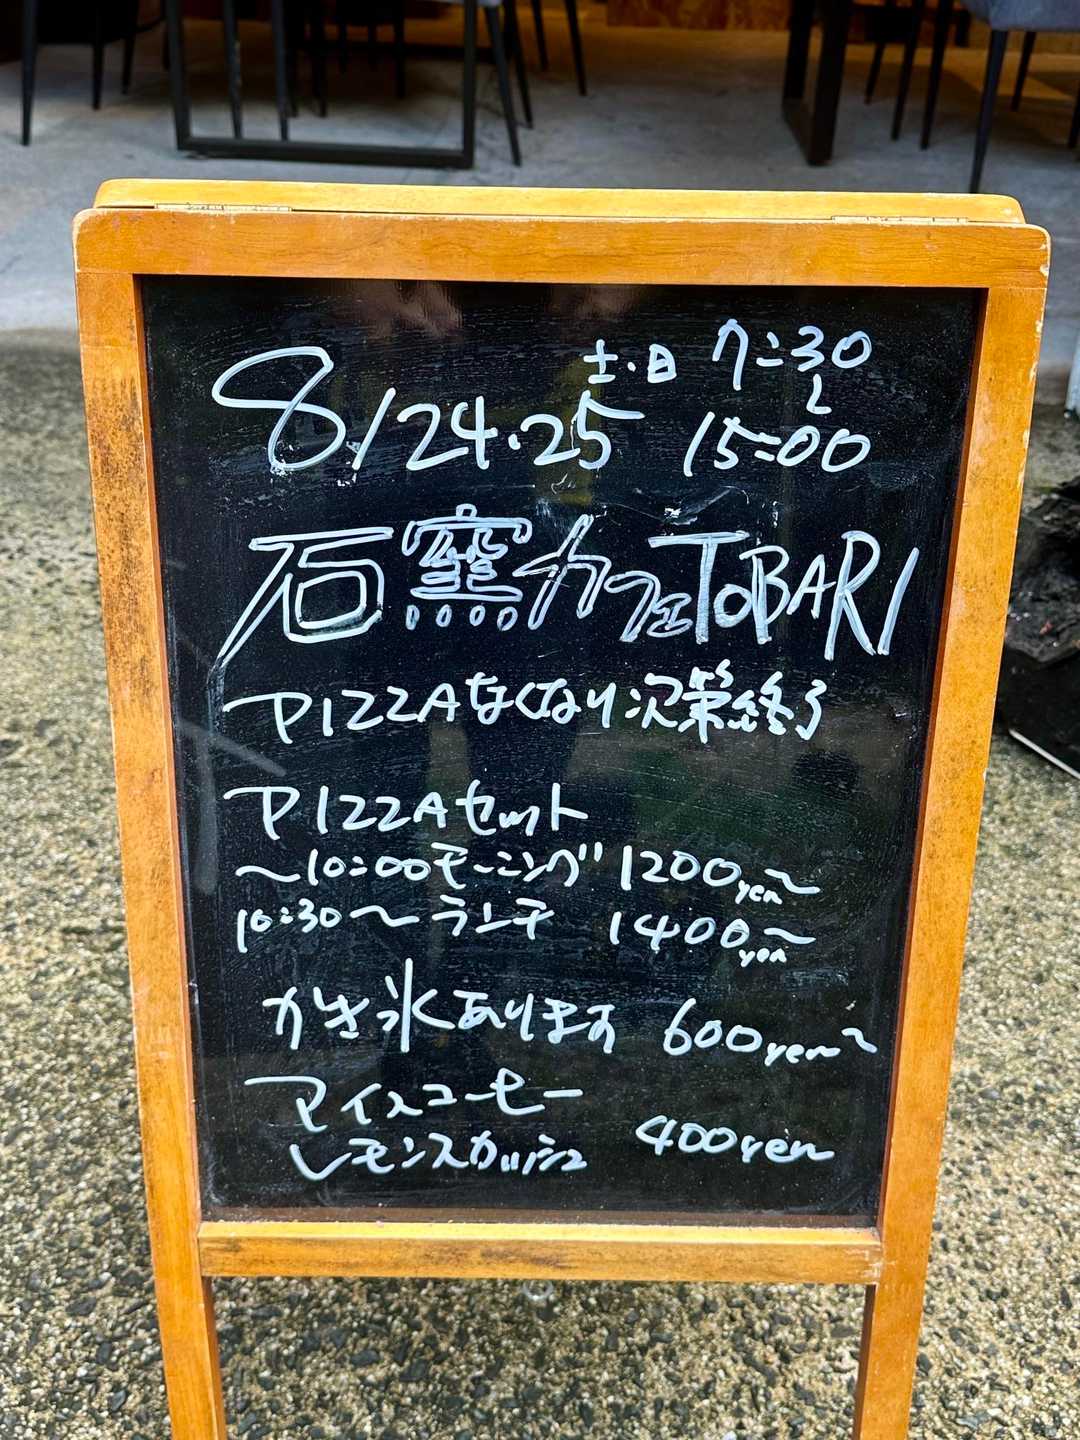 土・日 7:30
8/24・25 〜15:00
石窯カフェTOBARI
PIZZAなくなり次第終了
PIZZAセット
〜10:00モーニング 1200yen〜
10:30〜ランチ 1400yen〜
かき氷あります 600yen〜
アイスコーヒー
レモンスカッシュ 400yen